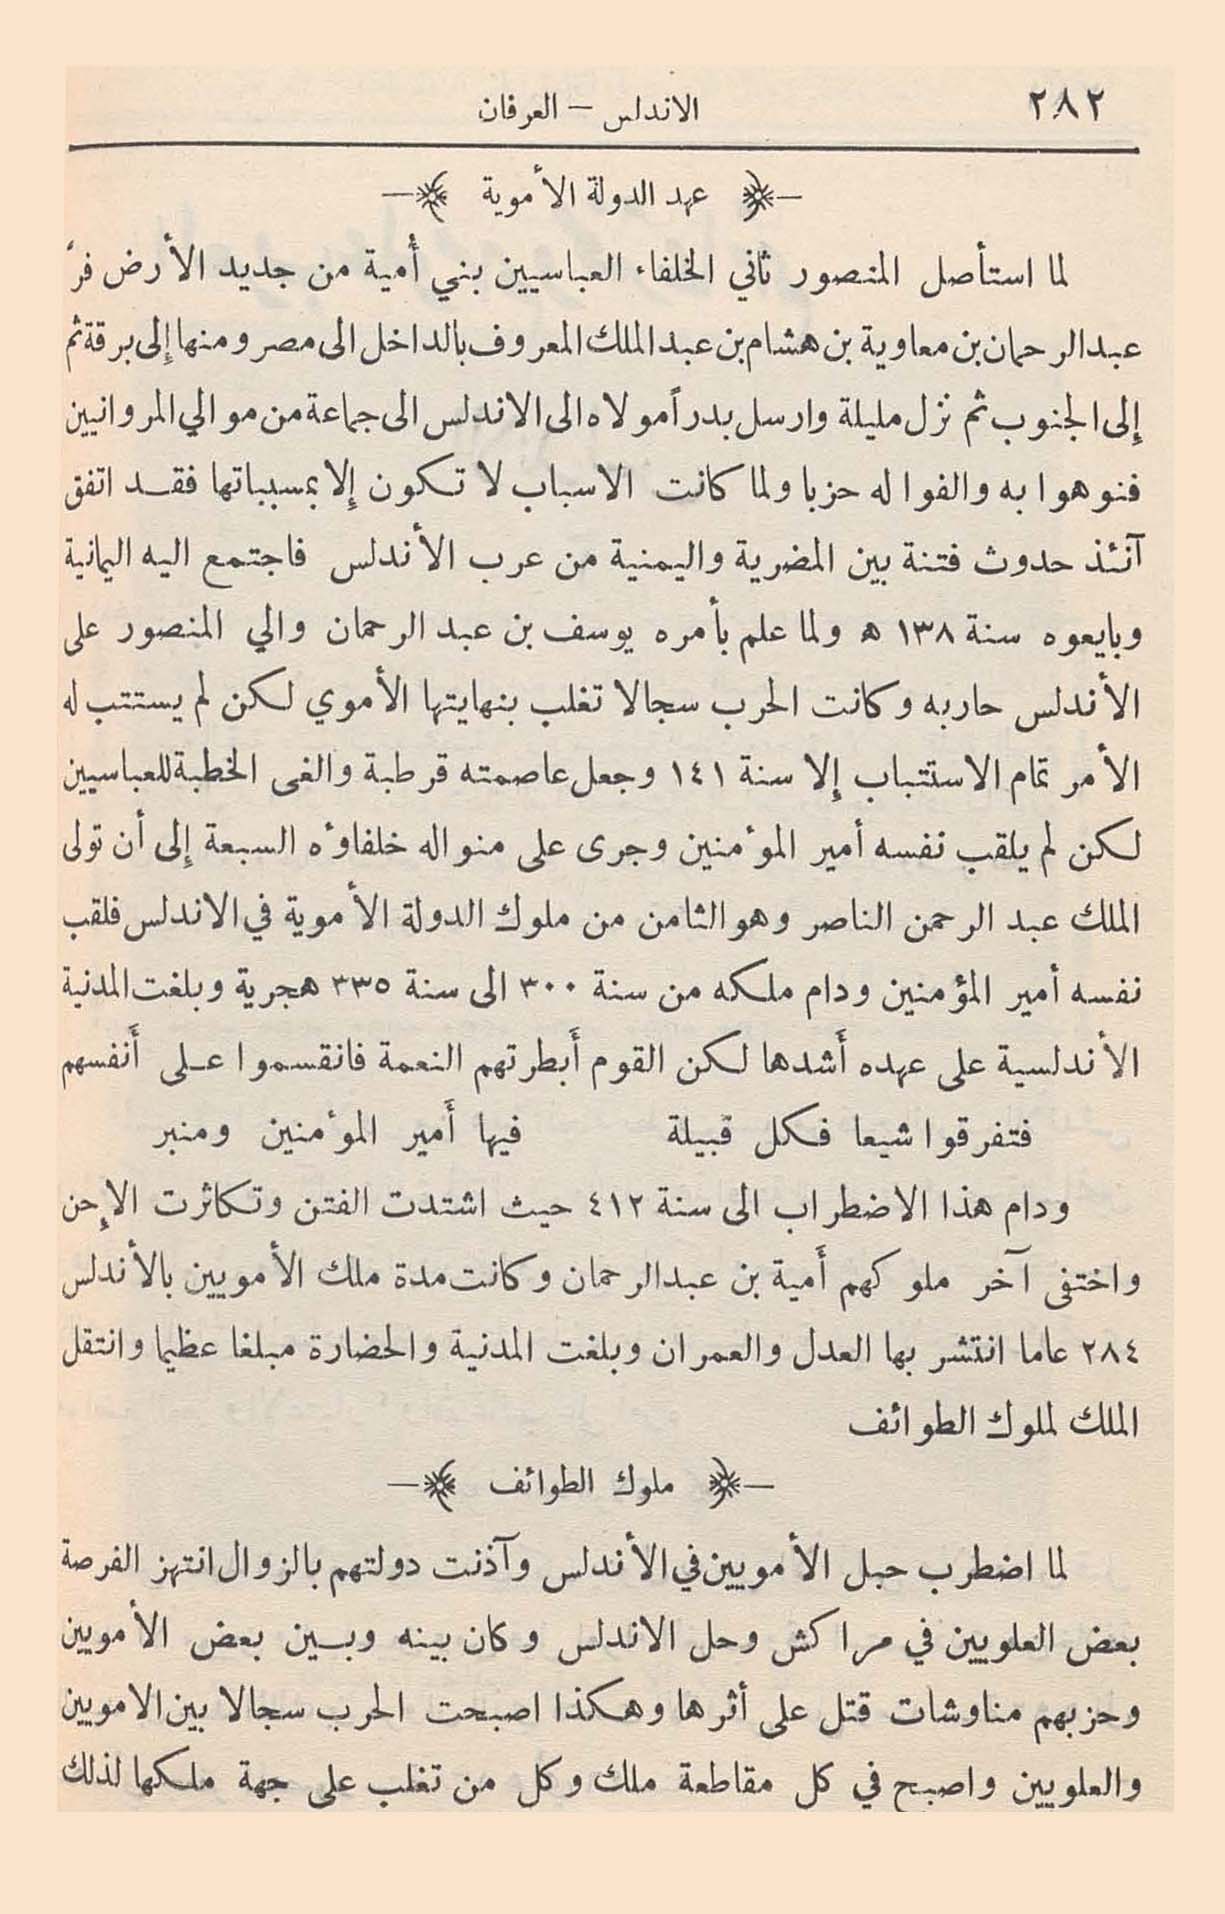 ٢٨٢
الاندلس – العرفان
عهد الدولة الأموية
لما استأصل المنصور ثاني الخلفاء العباسيين بني أُمية من جديد الأرض فرَّ
عبد الرحمان بن معاوية بن هشام بن عبد الملك المعروف بالداخل الى مصر ومنها إلى برقة ثم
إلى الجنوب ثم نزل مليلة وارسل بدراً مولاه الى الاندلس الى جماعة من موالي المروانيين
فنوهوا به والفوا له حزبا ولما كانت الاسباب لا تكون إلا بمسبباتها فقد اتفق
آنئذ حدوث فتنة بين المضرية واليمنية من عرب الأندلس فاجتمع اليه اليمانية
وبايعوه سنة ١٣٨ ه ولما علم بأمره يوسف بن عبد الرحمان والي المنصور على
الأندلس حاربه وكانت الحرب سجالا تغلب بنهايتها الأموي لكن لم يستتب له
الأمر تمام الاستتباب إلا سنة ١٤١ وجعل عاصمته قرطبة والغى الخطبة للعباسيين
لكن لم يلقب نفسه أمير المؤمنين وجرى على منواله خلفاؤه السبعة إلى أن تولى
الملك عبد الرحمن الناصر وهو الثامن من ملوك الدولة الأموية في الاندلس فلقب
نفسه أمير المؤمنين ودام ملكه من سنة ٣٠٠ الى سنة ٣٣٥ هجرية وبلغت المدنية
الأندلسية على عهده أَشدها لكن القوم أَبطرتهم النعمة فانقسموا على أَنفسهم
فتفرقوا شيعا فكل قبيلة فيها أَمير المؤمنين ومنبر
ودام هذا الاضطراب الى سنة ٤١٢ حيث اشتدت الفتن وتكاثرت الإحن
واختفى آخر ملوكهم أَمية بن عبدالرحمان وكانت مدة ملك الأمويين بالأندلس
٢٨٤ عاما انتشر بها العدل والعمران وبلغت المدنية والحضارة مبلغا عظيما وانتقل
الملك لملوك الطوائف
ملوك الطوائف
لما اضطرب حبل الأمويين في الأندلس وآذنت دولتهم بالزوال انتهز الفرصة
بعض العلويين في مراكش وحل الاندلس وكان بينه وبين بعض الأمويين
وحزبهم مناوشات قتل على أثرها وهكذا اصبحت الحرب سجالا بين الامويين
والعلويين واصبح في كل مقاطعة ملك وكل من تغلب على جهة ملكها لذلك